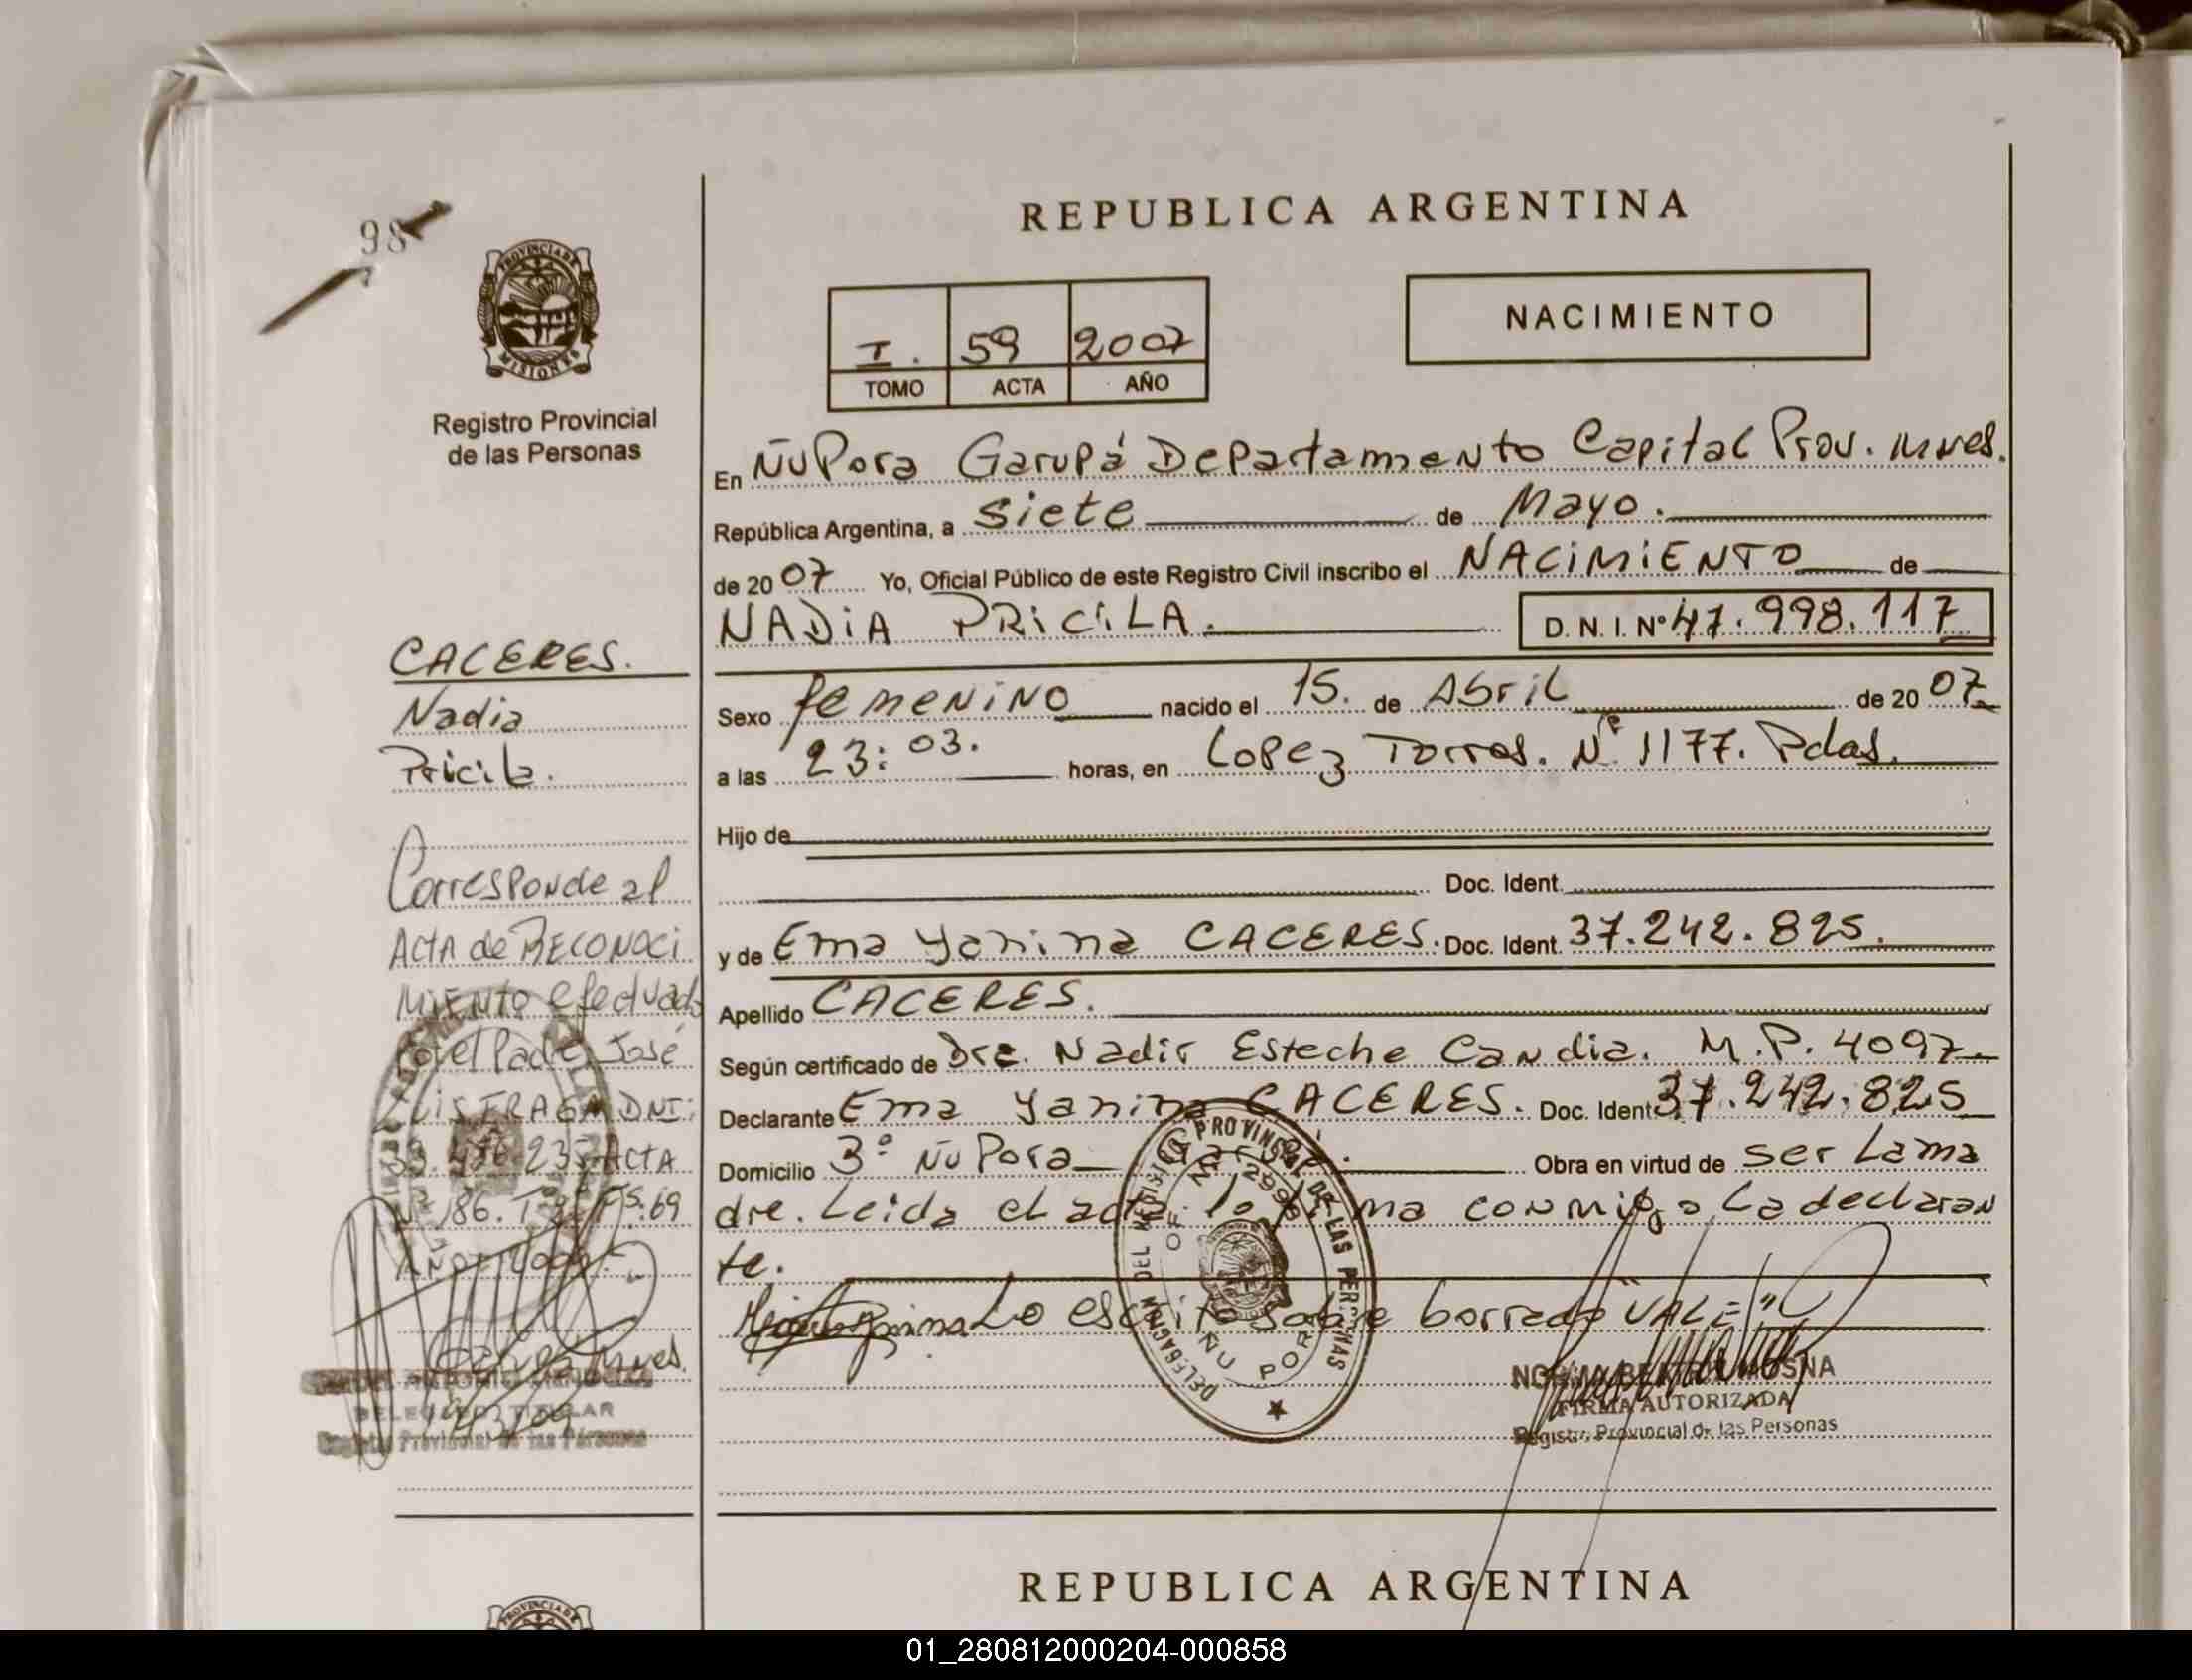 98
PROVINCIA DE
MISIONES
Registro Provincial
de las Personas
CACERES.
Nadia
Pricila.
Corresponde al
ACTA de RECONOCI
MIENTO efectuado
Por el Padre José
LUIS FRAGA DNI:
ACTA
Nº 186. Tº Fº 5:69
AÑO: 2009.
DELEGADO TITULAR
Registro Provincial de las Personas
REPUBLICA ARGENTINA
I. 59 2007
TOMO ACTA AÑO
NACIMIENTO
En ÑuPora Garupá Departamento Capital Prov. Mnes.
República Argentina, a siete de Mayo.
de 2007 Yo, Oficial Público de este Registro Civil inscribo el NACIMIENTO de
NADIA PRICILA. D. N. I. Nº 47.998.117
Sexo femenino nacido el 15. de Abril de 2007
a las 23:03. horas, en Lopez Torres. Nº 1177. Pdas.
Hijo de
Doc. Ident.
y de Ema Yanina CACERES. Doc. Ident. 37.242.825.
Apellido CACERES.
Según certificado de Dra. Nadir Esteche Candia. M.P. 4097.
Declarante Ema Yanina CACERES. Doc. Ident. 37.242.825
Domicilio 3º Ñu Pora Garupá. Obra en virtud de ser La ma
dre. Leida el acta la firma conmigo La declaran
te.
Lo escrito sobre borrado "VALE"
DELEGACION DEL REGISTRO PROVINCIAL DE LAS PERSONAS
ÑU PORA
NORMA BEATRIZ MOSNA
FIRMA AUTORIZADA
Registro Provincial de las Personas
REPUBLICA ARGENTINA
PROVINCIA DE
01_280812000204-000858